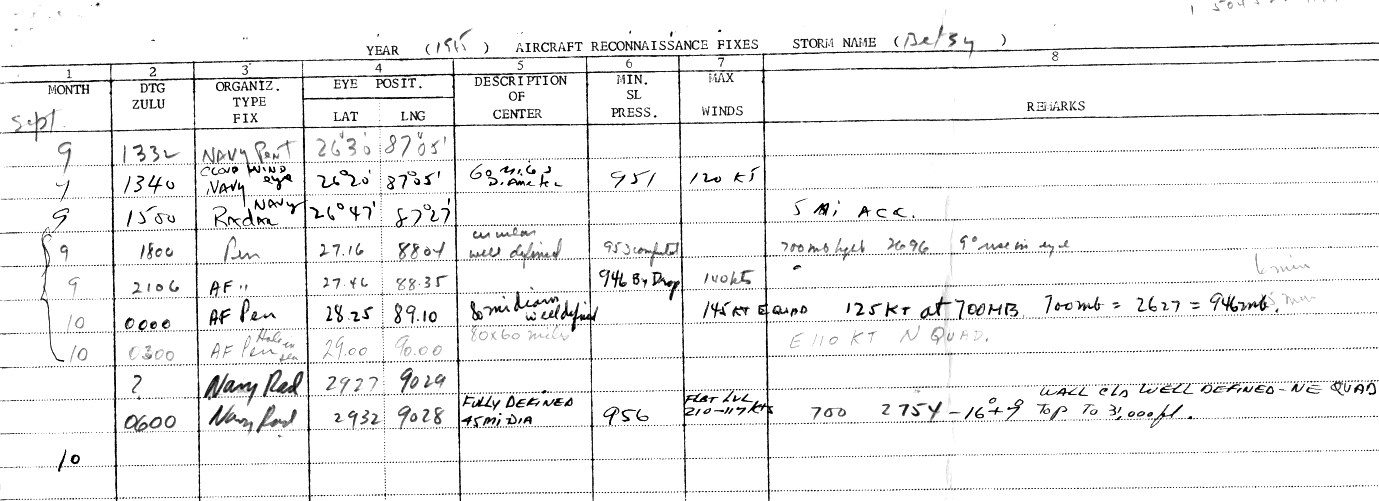 YEAR (1965) AIRCRAFT RECONNAISSANCE FIXES STORM NAME (Betsy)
1 2 3 4 5 6 7 8
MONTH DTG ZULU ORGANIZ. TYPE FIX EYE POSIT. LAT LNG DESCRIPTION OF CENTER MIN. SL PRESS. MAX WINDS REMARKS
Sept.
9 1332 NAVY Pent 26°30' 87°05'
9 1340 CLOUD WIND NAVY eye 26°20' 87°05' 951 120 KT
9 1500 NAVY RADAR 26°47' 87°27' 5 Mi ACC.
9 1800 Pen 27.16 8804 circular well defined 953 computed 700mb hght 2696 9° rise in eye
9 2106 AF " 27.46 88.35 946 By Drop 140 kts 6 min
10 0000 AF Pen 28.25 89.10 well defined 145 KT E QUAD 125 KT at 700MB 700mb = 2627 = 946mb.
10 0300 AF Pen 29.00 90.00 80x60 miles E 110 KT N QUAD.
? Navy Rad 2927 9029
0600 Navy Rad 2932 9028 FULLY DEFINED 45 MI DIA 956 FLAT LVL 210-117 KTS 700 2754 -16°+9 WALL CLD WELL DEFINED - NE QUAD TOP TO 31,000 ft.
10